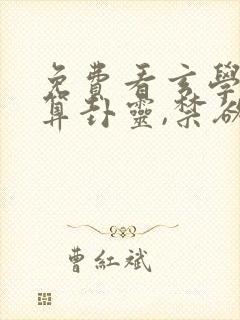 免費看玄學
算卦靈,禁欲
曹紅斌